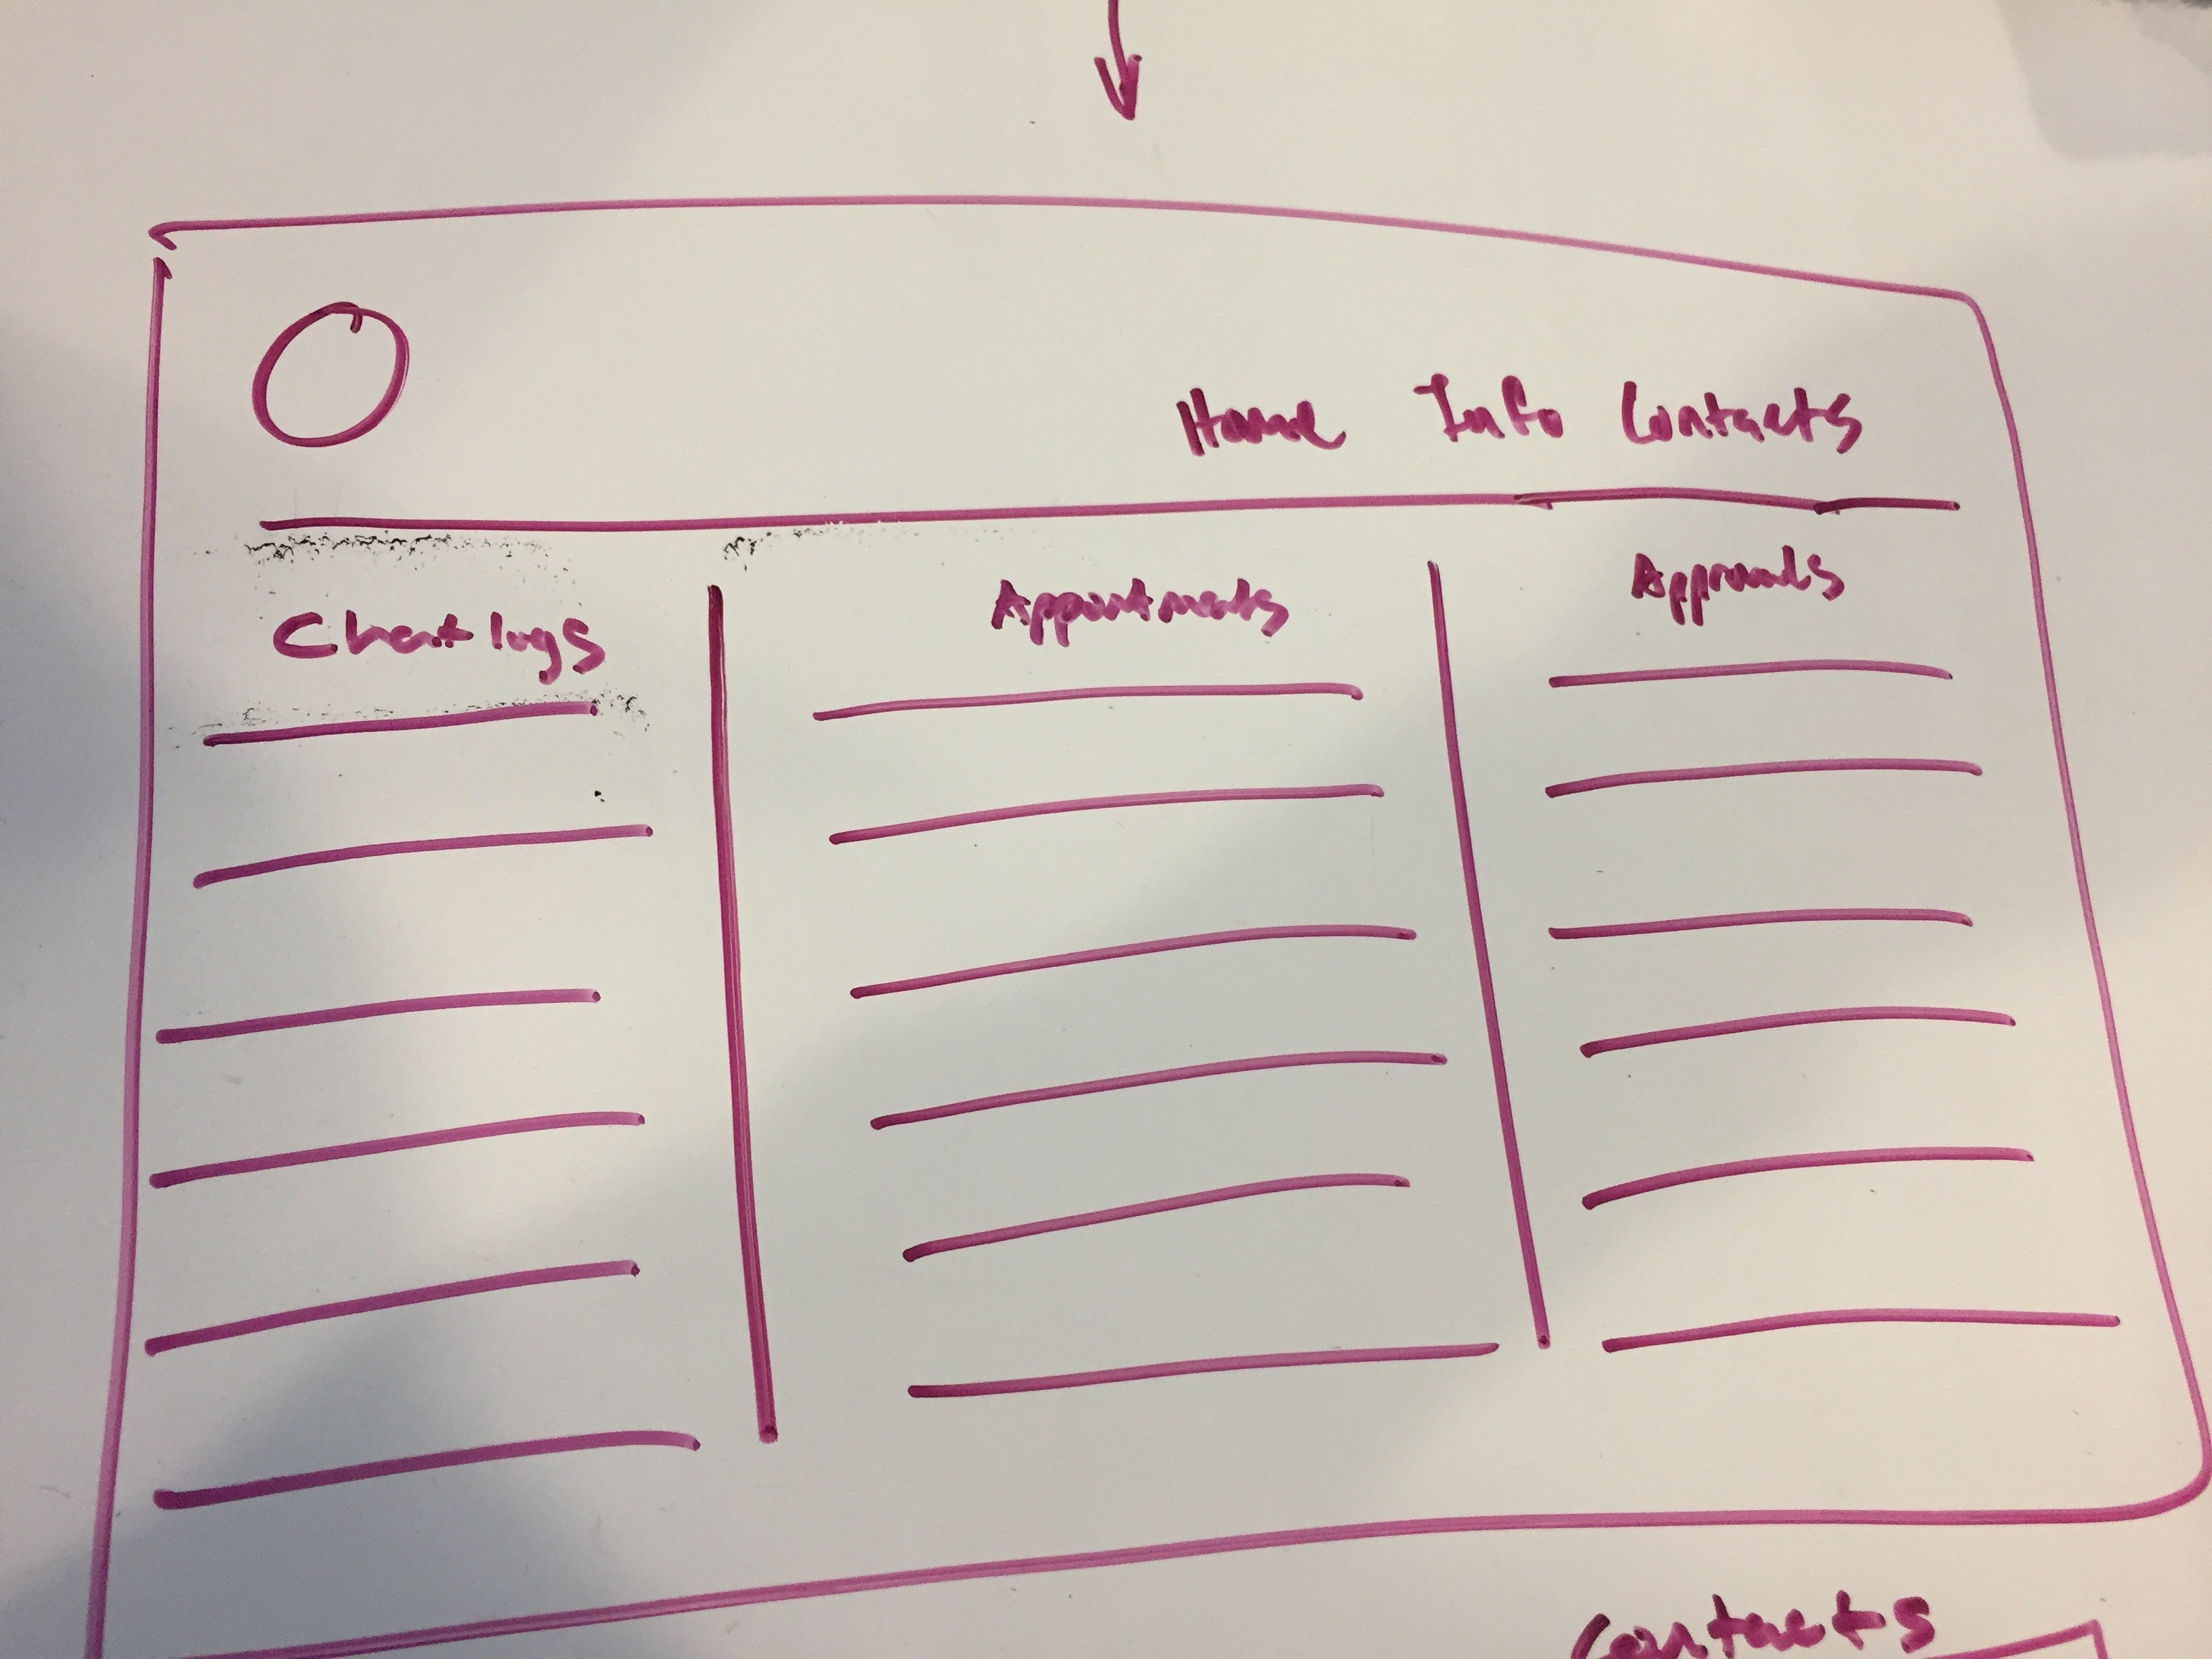 Home Info Contacts
Chat logs
Appointments
Approvals
Contacts